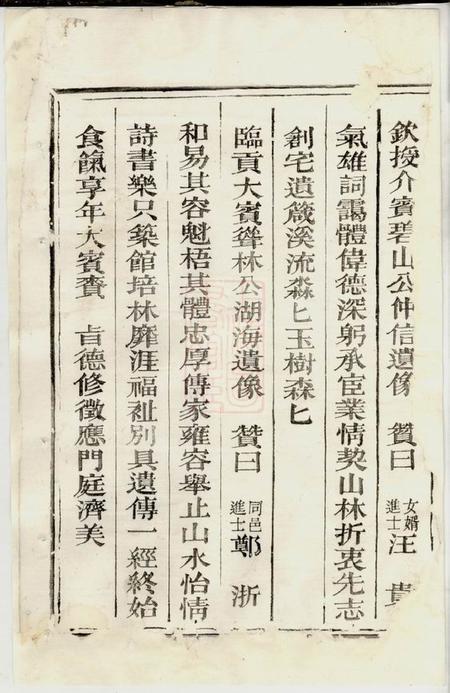 欽授介賓碧山公仲信遺像 贊曰 女婿進士汪 貴
氣雄詞靄體偉德深躬承宦業情契山林折衷先志
創宅遺箴溪流淼匕玉樹森匕
臨貢大賓聳林公湖海遺像 贊曰 同邑進士鄭 浙
和易其容魁梧其體忠厚傳家雍容舉止山水怡情
詩書樂只築館培林靡涯福祉別具遺傳一經終始
食餼享年大賓賚 㫖德修徵應門庭濟美